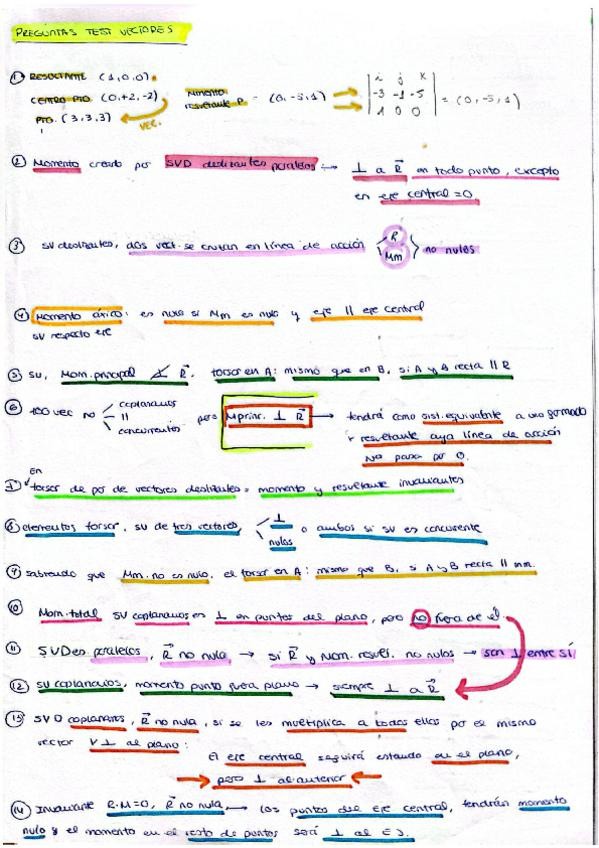 PREGUNTAS TEST VECTORES
① RESULTANTE (1,0,0).
CENTRO PTO. (0,+2,-2)
PTO. (3,3,3)
VEC.
Momento resultante P. = (0,-5,1)
i j k
-3 -1 -5
1 0 0
= (0,-5,1)
② Momento creado por SVD deslizantes paralelos → ⊥ a R en todo punto, excepto
en eje central = 0
③ SV deslizantes, dos vect. se cruzan en línea de acción < R Mm > no nulos
④ Momento áxico: es nulo si Mm es nulo y eje || eje central
SV respecto eje
⑤ SV, Mom. principal ⊥ R. torsor en A: mismo que en B, si A y B recta || R
⑥ 100 vec no < coplanarios
||
concurrentes
pero Mprinc. ⊥ R → tendrá como sist. equivalente a uno formado
x resultante cuya línea de acción
NO pasa por O.
en
7) torsor de par de vectores deslizantes = momento y resultante invariantes
⑧ elementos torsor, SV de tres vectores, < ⊥ nulos o ambos si SV es concurente
⑨ sabiendo que Mm. no es nulo. el torsor en A: mismo que B, si A y B recta || mm.
⑩ Mom. total SV coplanarios es ⊥ en puntos del plano, pero no fuera de él
⑪ SVDes paralelos, R no nula → si R y Mom. result. no nulos → son ⊥ entre sí
⑫ SV coplanarios, momento punto fuera plano → siempre ⊥ a R
⑬ SVD coplanarios, R no nula, si se les multiplica a todos ellos por el mismo
vector V ⊥ al plano:
El eje central seguirá estando en el plano,
pero ⊥ al anterior
⑭ Invariante R·M=0, R no nula → los puntos del eje central, tendrán momento
nulo y el momento en el resto de puntos será ⊥ al E.